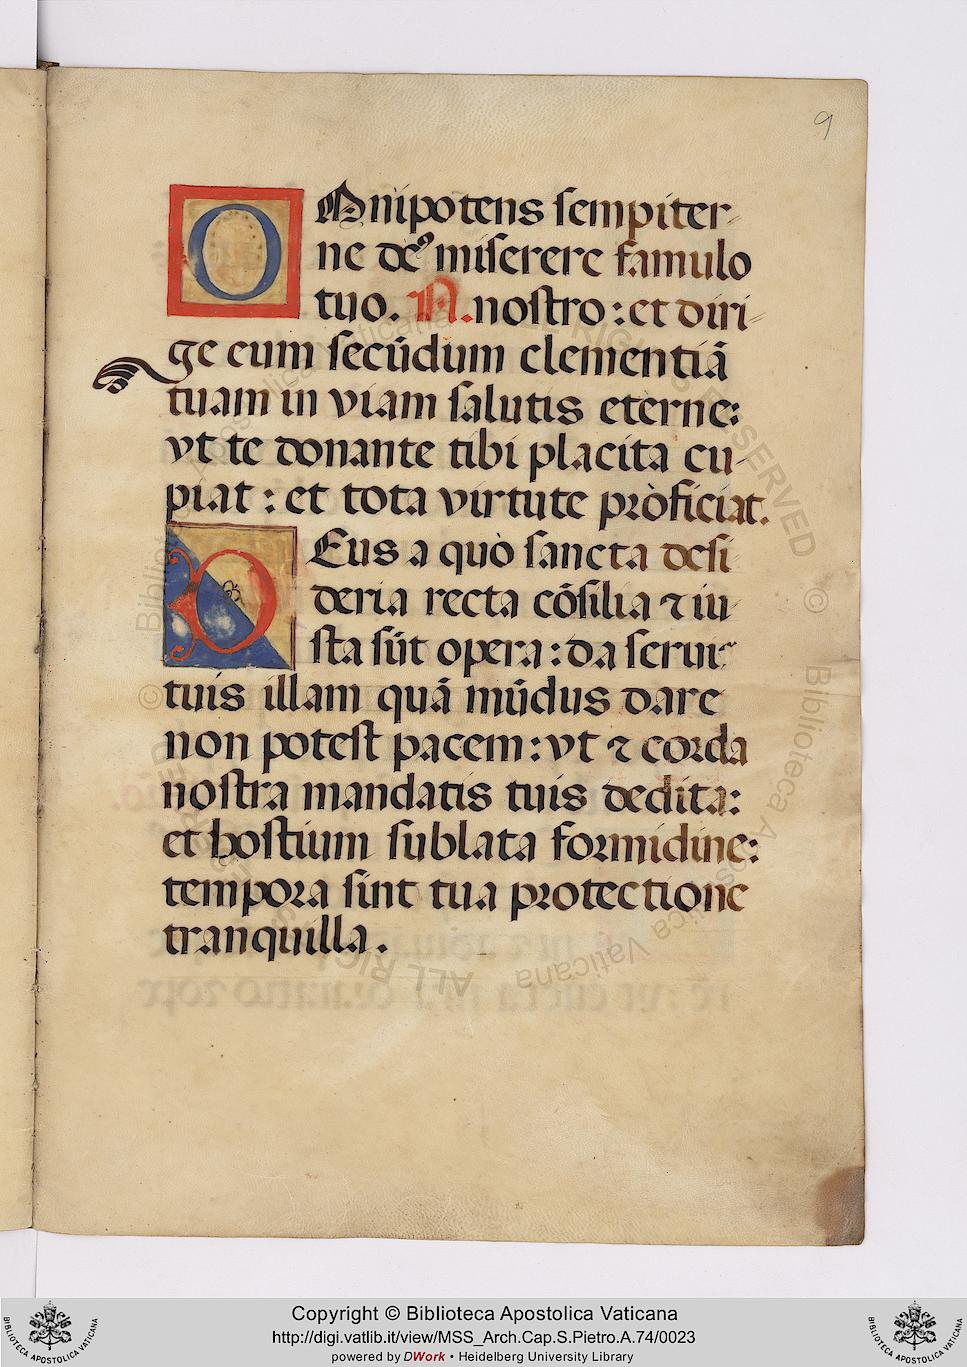 9
OMnīpotens sempiter-
ne deꝰ miserere famulo
tuo. N. nostro: et diri-
ge eum secūdum clementiā
tuam in viam salutis eterne:
vt te donante tibi placita cu-
piat: et tota virtute proficiat.
DEus a quo sancta desi
deria recta cōsilia ⁊ iu-
sta sūt opera: da seruis
tuis illam quā mūdus dare
non potest pacem: vt ⁊ corda
nostra mandatis tuis dedita:
et hostium sublata formidine:
tempora sint tua protectione
tranquilla.
Copyright © Biblioteca Apostolica Vaticana
http://digi.vatlib.it/view/MSS_Arch.Cap.S.Pietro.A.74/0023
powered by DWork • Heidelberg University Library
BIBLIOTECA APOSTOLICA VATICANA
BIBLIOTECA APOSTOLICA VATICANA
© Biblioteca Apostolica Vaticana ALL RIGHTS RESERVED
© Biblioteca Apostolica Vaticana ALL RIGHTS RESERVED